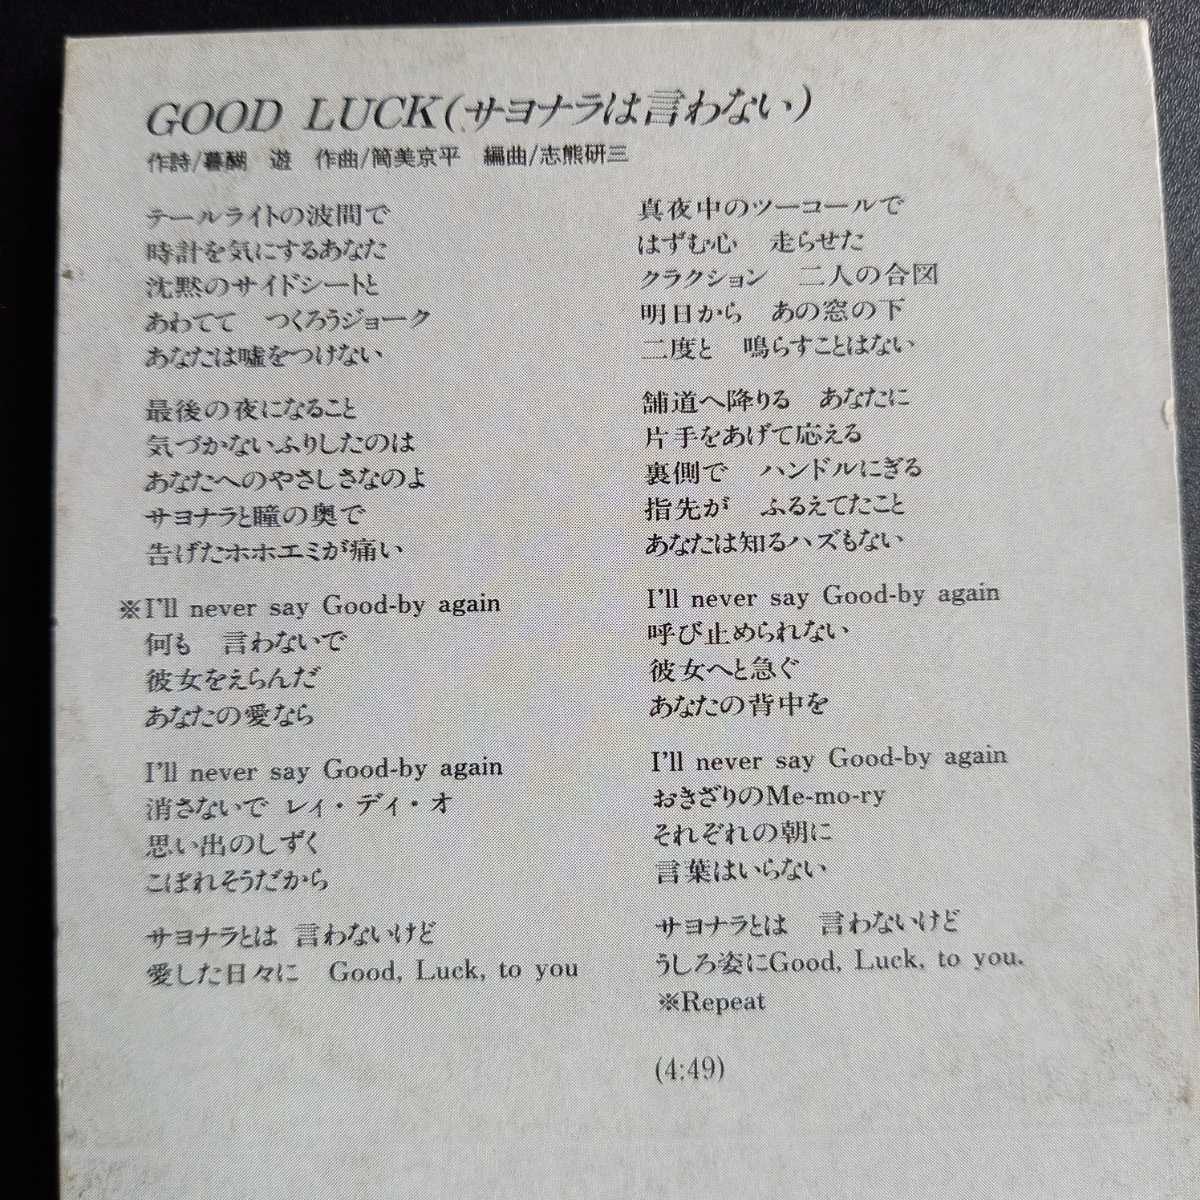 GOOD LUCK(サヨナラは言わない)
作詩/暮醐　遊　作曲/筒美京平　編曲/志熊研三
テールライトの波間で
時計を気にするあなた
沈黙のサイドシートと
あわてて　つくろうジョーク
あなたは嘘をつけない
最後の夜になること
気づかないふりしたのは
あなたへのやさしさなのよ
サヨナラと瞳の奥で
告げたホホエミが痛い
※I'll never say Good-by again
何も　言わないで
彼女をえらんだ
あなたの愛なら
I'll never say Good-by again
消さないで レィ・ディ・オ
思い出のしずく
こぼれそうだから
サヨナラとは 言わないけど
愛した日々に　Good, Luck, to you
真夜中のツーコールで
はずむ心　走らせた
クラクション　二人の合図
明日から　あの窓の下
二度と　鳴らすことはない
舗道へ降りる　あなたに
片手をあげて応える
裏側で　ハンドルにぎる
指先が　ふるえてたこと
あなたは知るハズもない
I'll never say Good-by again
呼び止められない
彼女へと急ぐ
あなたの背中を
I'll never say Good-by again
おきざりのMe-mo-ry
それぞれの朝に
言葉はいらない
サヨナラとは　言わないけど
うしろ姿にGood, Luck, to you.
※Repeat
(4:49)